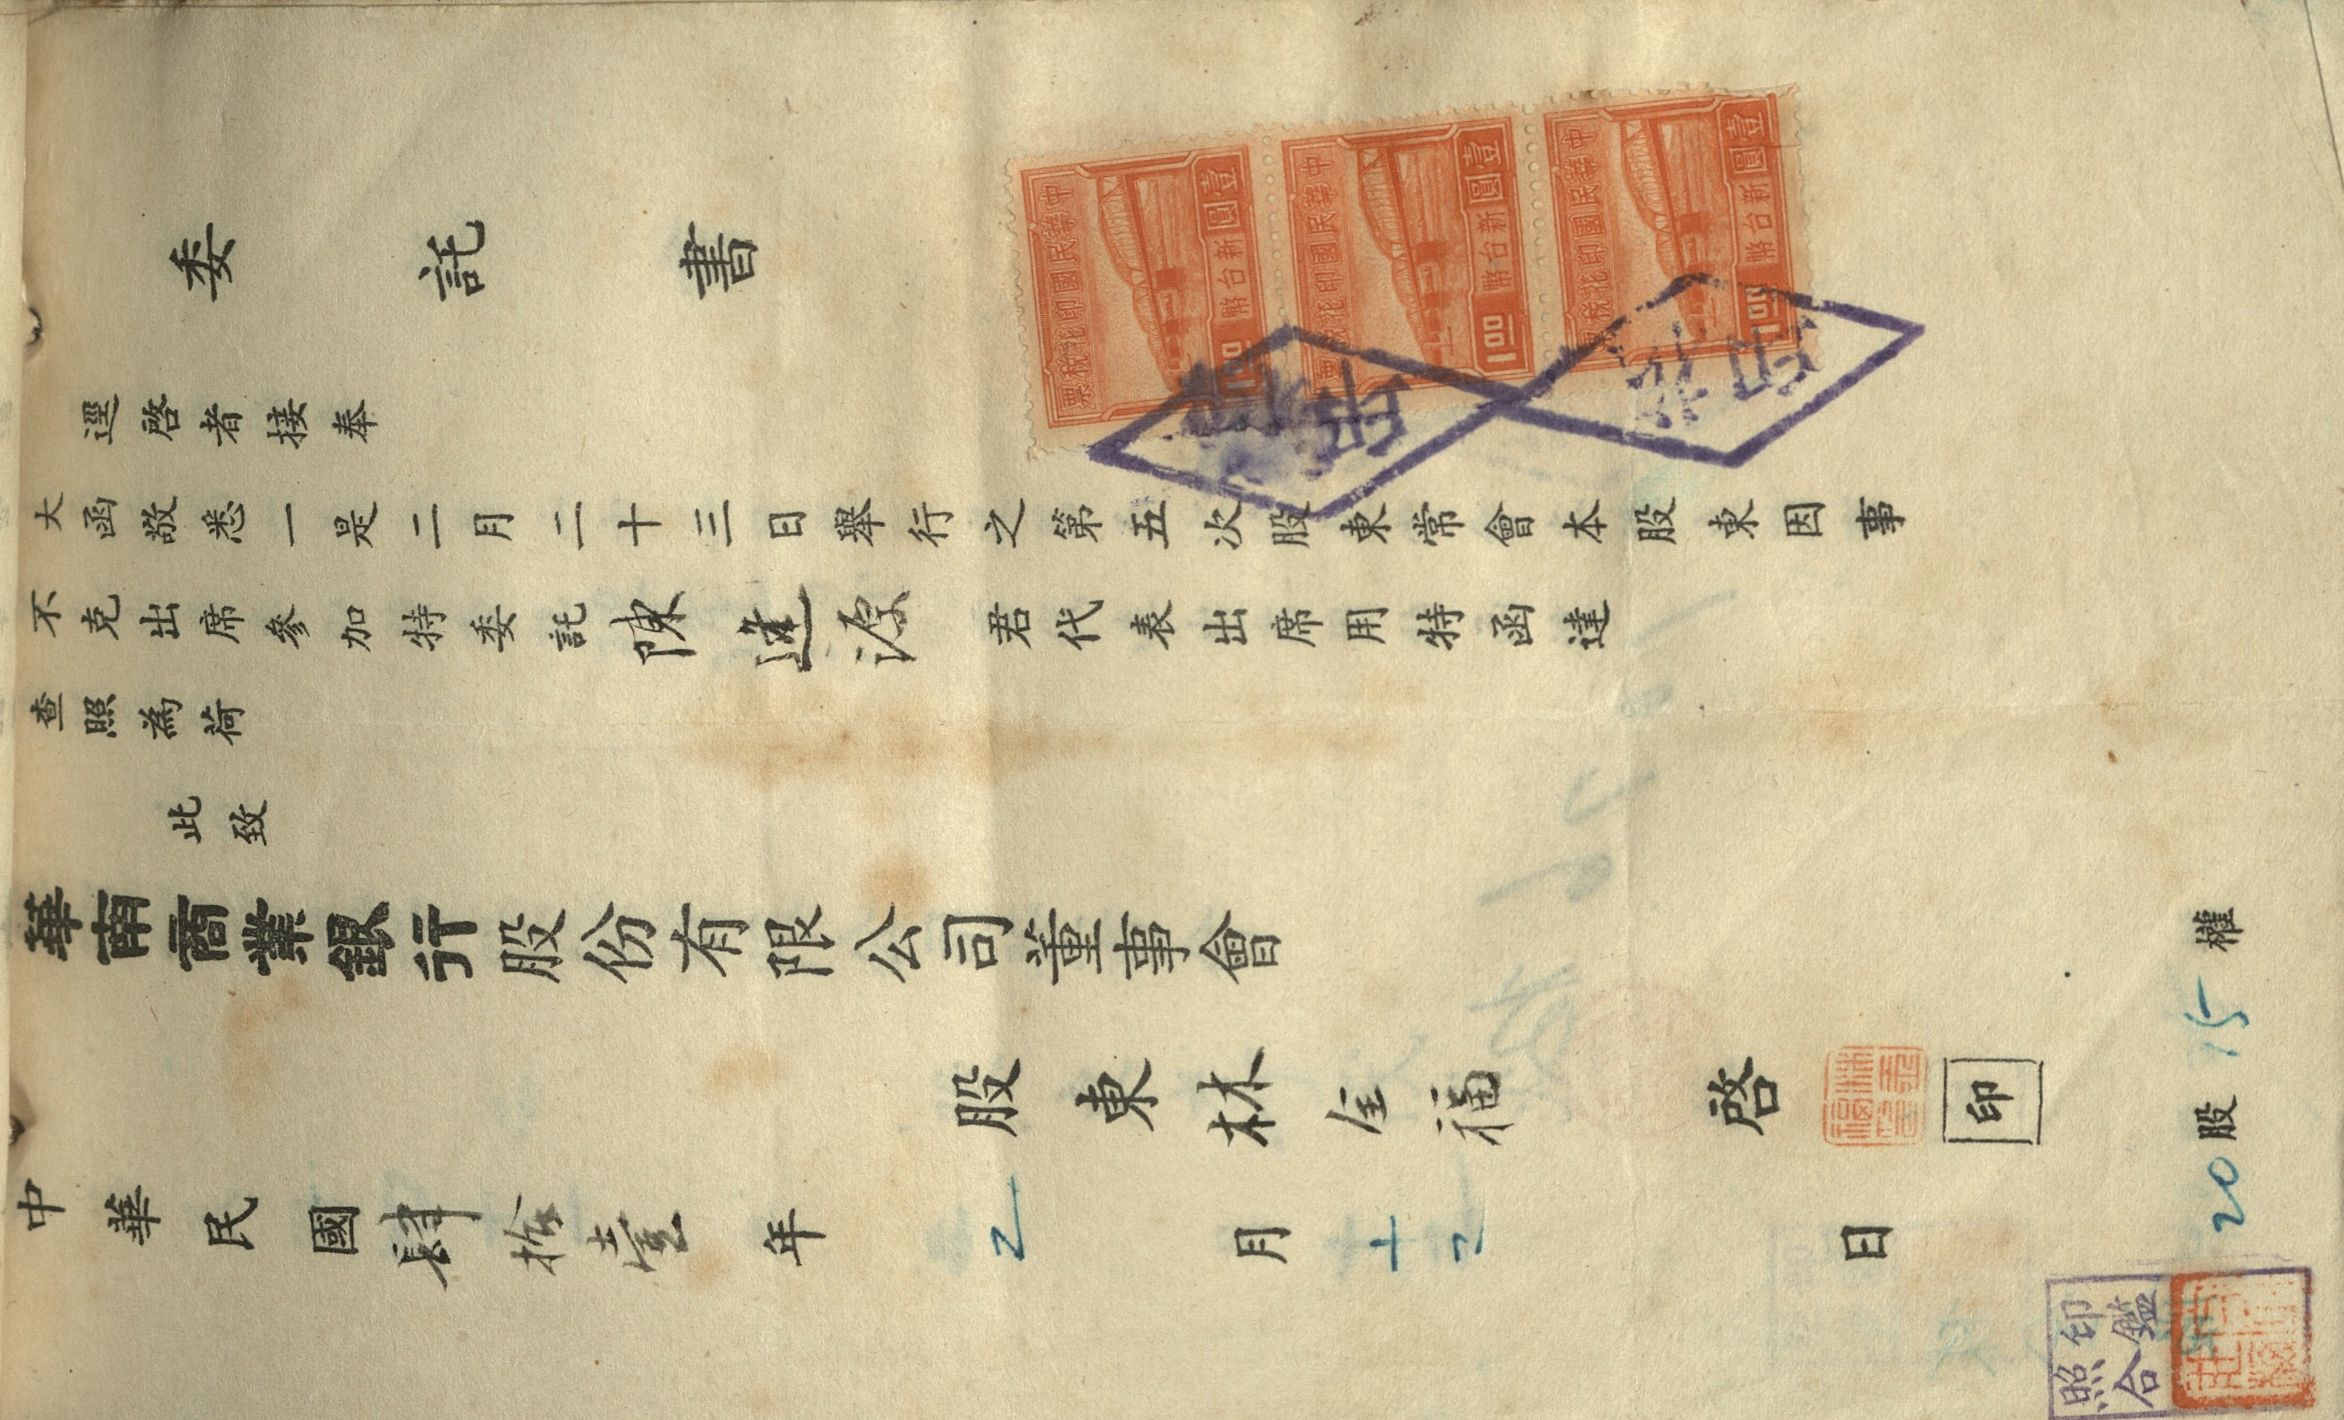 委託書
逕啓者接奉
大函敬悉一是二月二十三日舉行之第五次股東常會本股東因事
不克出席參加特委託陳逢源君代表出席用特函達
查照為荷
此致
華南商業銀行股份有限公司董事會
股東林金福啓
印
中華民國肆拾壹年2月十2日
20股15權
印鑑
照合
中華民國印花稅票
壹圓
新台幣
1.00
中華民國印花稅票
壹圓
新台幣
1.00
中華民國印花稅票
壹圓
新台幣
1.00